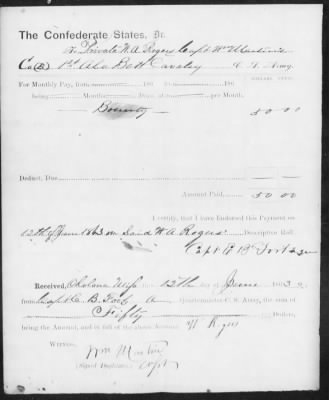 The Confederate States, Dr.
To Private W A Rogers Capt Wm
Co (E) 1st Ala Batt Cavalry C. S. Army.
DOLLARS CENTS
For Monthly Pay, from 186 to 186
being Months Days, at per Month.
Bounty 50 00
Deduct, Due
Amount Paid, 50 00
I certify, that I have Endorsed this Payment on
12th of June 1863 on Said W A Rogers Descriptive Roll.
Capt
Received, Okolona Miss this 12th day of June 1863,
from Capt C. B. A Quartermaster C. S. Army, the sum of
Fifty Dollars,
being the Amount, and in full of the above Account.
W Rogers
Witness,
Wm
(Signed Duplicates) Capt